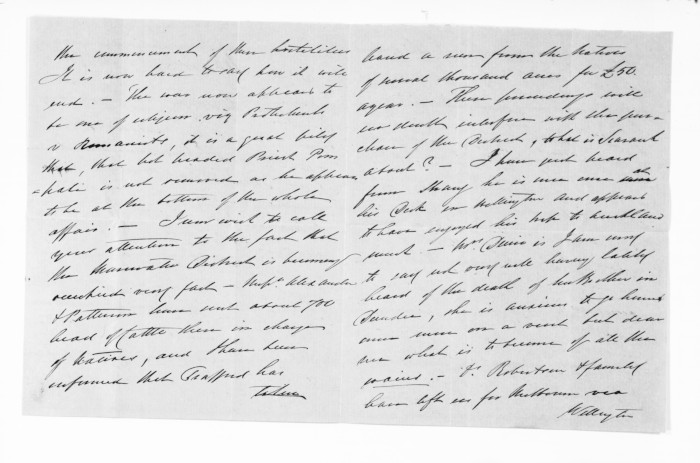 the commencement of these hostilities
It is now hard to say how it will
end. — The war now appears to
be one of religion, viz Protestants
v Romanists, it is a great pity
that, that hot headed Priest
is not removed as he appears
to be at the bottom of the whole
affair. — I now wish to call
your attention to the fact that
the Manawatu District is becoming
occupied very fast — Messrs Alexander
& Patterson have sent about 700
head of Cattle there in charge
of Natives, and I have been
informed that Trafford has
taken
hand a run from the Natives
of several thousand acres for £50.
a year. — These proceedings will
no doubt interfere with the pur-
chase of the District, what is Searancke
about? — I have just heard
from he is once more at
his Desk in Wellington and appears
to have enjoyed his trip to Auckland
much. — Mrs is I am sorry
to say not very well having lately
heard of the death of her Brother in
Dundee, she is anxious to go home
once more on a visit but dear
me what is to become of all the
. — Dr. Robertson & family
have left us for Melbourne via
Wellington